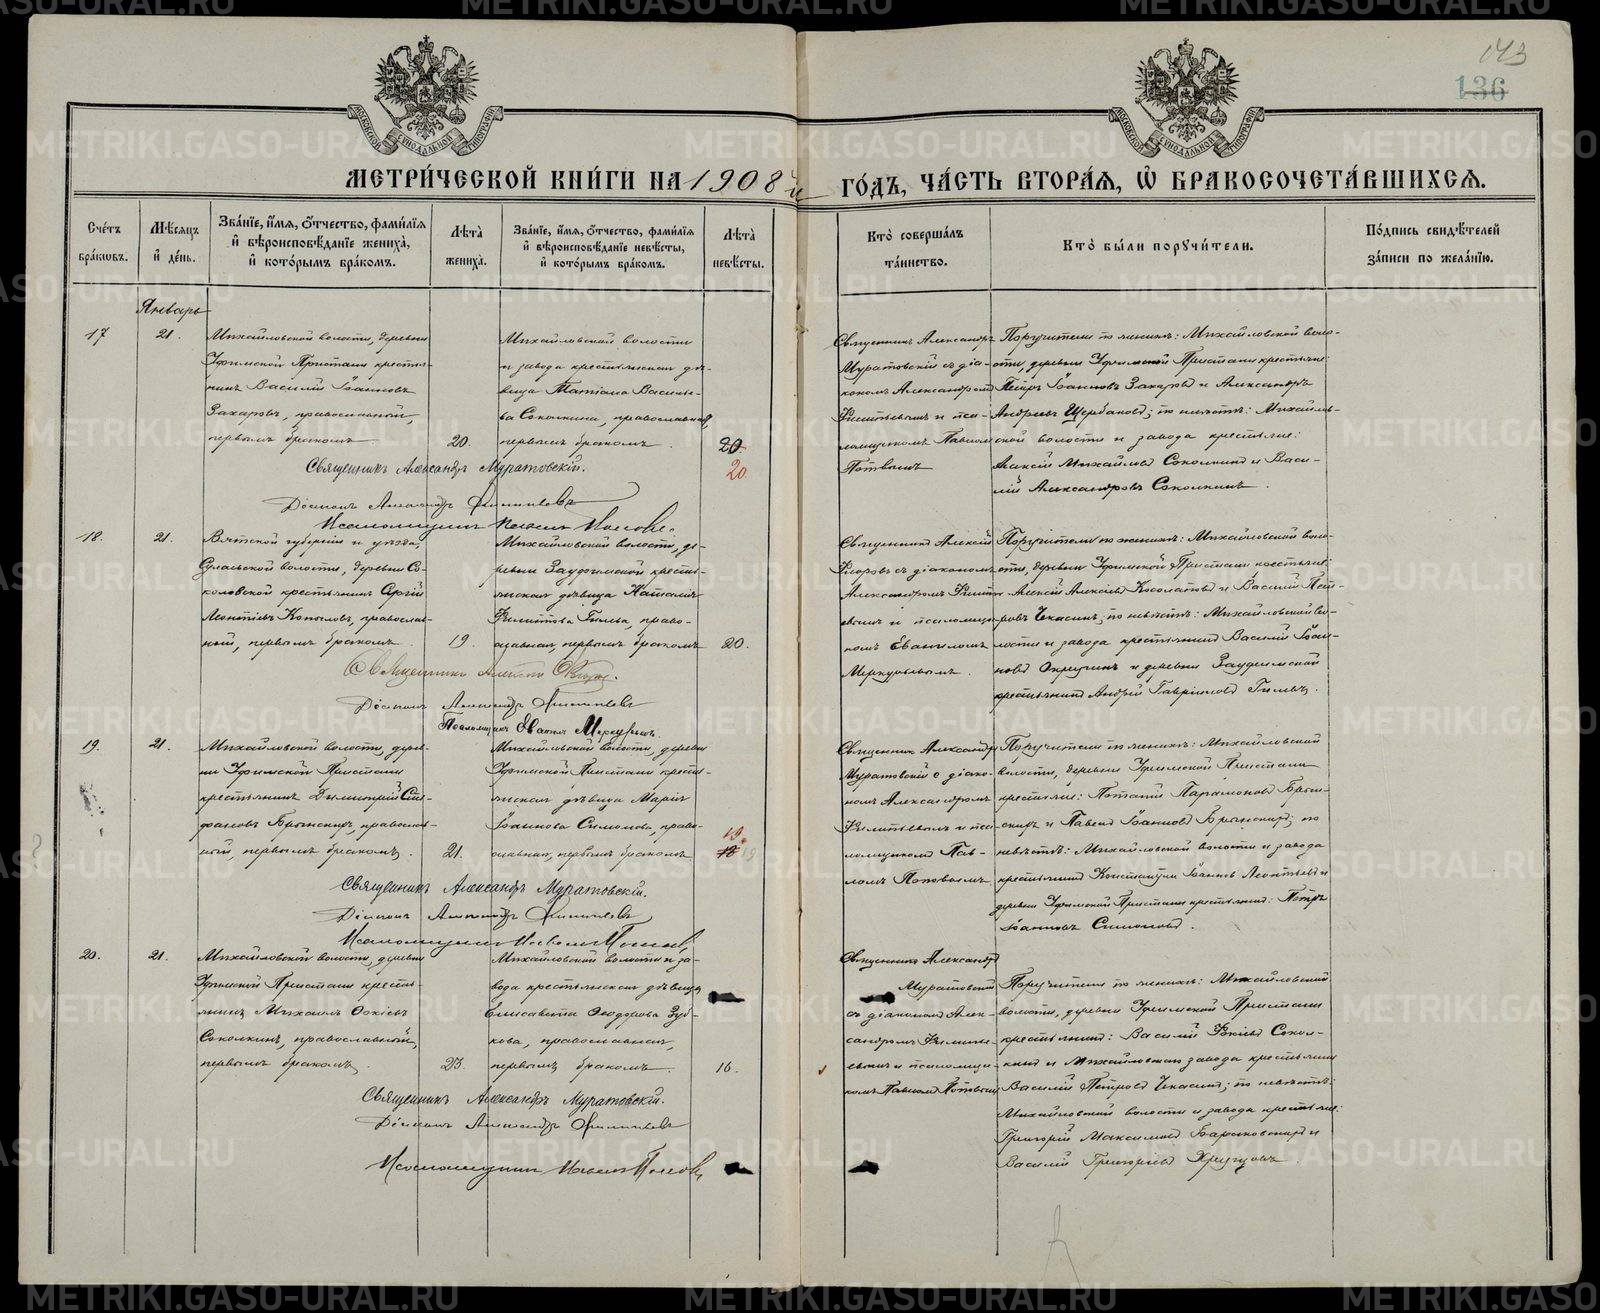 143
136
МЕТРИ́ЧЕСКОЙ КНИ́ГИ НА 1908 й ГО́ДЪ, ЧА́СТЬ ВТОРА́Я, Ѡ БРАКОСОЧЕТА́ВШИХСЯ.
Сче́тъ бра́кѡвъ.
Мѣ́сяцъ и̂ де́нь.
Зва́нїе, и́мя, о́тчество, фами́лїя и̂ вѣроисповѣ́данїе жениха̀, и̂ кото́рымъ бра́комъ.
Лѣ́та̀ жениха̀.
Зва́нїе, и́мя, о́тчество, фами́лїя и̂ вѣроисповѣ́данїе невѣ́сты, и̂ кото́рымъ бра́комъ.
Лѣ́та̀ невѣ́сты.
Кто̀ соверша́лъ та́инство.
Кто̀ бы́ли порꙋчи́тели.
По́дпись свидѣ́телей за́писи по жела́нїю.
Январь
17
21.
Михайловской волости, деревни
Уфимской Пристани крестья-
нинъ Василій Іоанновъ
Захаровъ, православный,
первымъ бракомъ
20.
Михайловской волости
и завода крестьянская дѣ-
вица Татіана Василье-
ва Соколкина, православная,
первымъ бракомъ.
20
20
Священникъ Александръ
Муратовскій съ діа-
кономъ Александромъ
Филипьевымъ и пса-
ломщикомъ Павломъ
Поповымъ
Поручители по женихѣ: Михайловской воло-
сти, деревни Уфимской Пристани крестьяне:
Петръ Іоанновъ Захаровъ и Александръ
Андреевъ Щербаковъ; по невѣстѣ: Михайлов-
ской волости и завода крестьяне:
Алексій Михайловъ Соколкинъ и Васи-
лій Александровъ Соколкинъ.
Священникъ Александръ Муратовскій.
Діаконъ Александръ Филипьевъ
Псаломщикъ Павелъ Поповъ.
18.
21.
Вятской губерніи и уѣзда,
Сулаьской волости, деревни Со-
коловской крестьянинъ Сергій
Леонтіевъ Копыловъ, православ-
ный, первымъ бракомъ
19.
Михайловской волости, де-
ревни Зауфимской кресть-
янская дѣвица Наталія
Филиппова Гилева, право-
славная, первымъ бракомъ
20.
Священникъ Алексій
съ діакономъ
Александромъ Филипь-
евымъ и псаломщи-
комъ Евангеломъ
Меркурьевымъ.
Поручители по женихѣ: Михайловской воло-
сти, деревни Уфимской Пристани крестьяне:
Алексій Алексіевъ и Василій Пет-
ровъ Чекасинъ; по невѣстѣ: Михайловской во-
лости и завода крестьянинъ Василій Іоан-
новъ и деревни Зауфимской
крестьянинъ Андрей Гавріиловъ Гилевъ.
Священникъ Алексій
Діаконъ Александръ Филипьевъ
Псаломщикъ Меркурьевъ.
19.
21.
Михайловской волости, дерев-
ни Уфимской Пристани
крестьянинъ Димитрій Сте-
фановъ Брынскихъ, православ-
ный, первымъ бракомъ.
21.
Михайловской волости, деревни
Уфимской Пристани кресть-
янская дѣвица Марія
Іоаннова Симонова, право-
славная, первымъ бракомъ
19.
18 19
Священникъ Александръ
Муратовскій с діако-
номъ Александромъ
Филипьевымъ и пса-
ломщикомъ Пав-
ломъ Поповымъ
Поручители по женихѣ: Михайловской
волости, деревни Уфимской Пристани
крестьяне: Потапій Парамоновъ Брын-
скихъ и Павелъ Іоанновъ Брынскихъ; по
невѣстѣ: Михайловской волости и завода
крестьянинъ Константинъ Іоанновъ Леонтьевъ и
деревни Уфимской Пристани крестьянинъ: Петръ
Іоанновъ Симоновъ.
Священникъ Александръ Муратовскій.
Діаконъ Александръ Филипьевъ
Псаломщикъ Павелъ Поповъ,
20.
21.
Михайловской волости, деревни
Уфимской Пристани кресть-
янинъ Михаилъ Фокіевъ
Соколкинъ, православный,
первымъ бракомъ.
23.
Михайловской волости и за-
вода крестьянская дѣвица
Елисавета Ѳеодорова Зуб-
кова, православная,
первымъ бракомъ.
16.
Священникъ Александръ
Муратовскій
съ діакономъ Алек-
сандромъ Филипь-
евымъ и псаломщи-
комъ Павломъ Поповымъ
Поручители по женихѣ: Михайловской
волости, деревни Уфимской Пристани
крестьянинъ: Василій Фокіевъ Сокол-
кинъ и Михайловскаго завода крестьянинъ
Василій Петровъ Чекасинъ; по невѣстѣ:
Михайловской волости и завода крестьяне:
Григорій Максимовъ и
Василій Григорьевъ
Священникъ Александръ Муратовскій.
Діаконъ Александръ Филипьевъ
Псаломщикъ Павелъ Поповъ,
METRIKI.GASO-URAL.RU